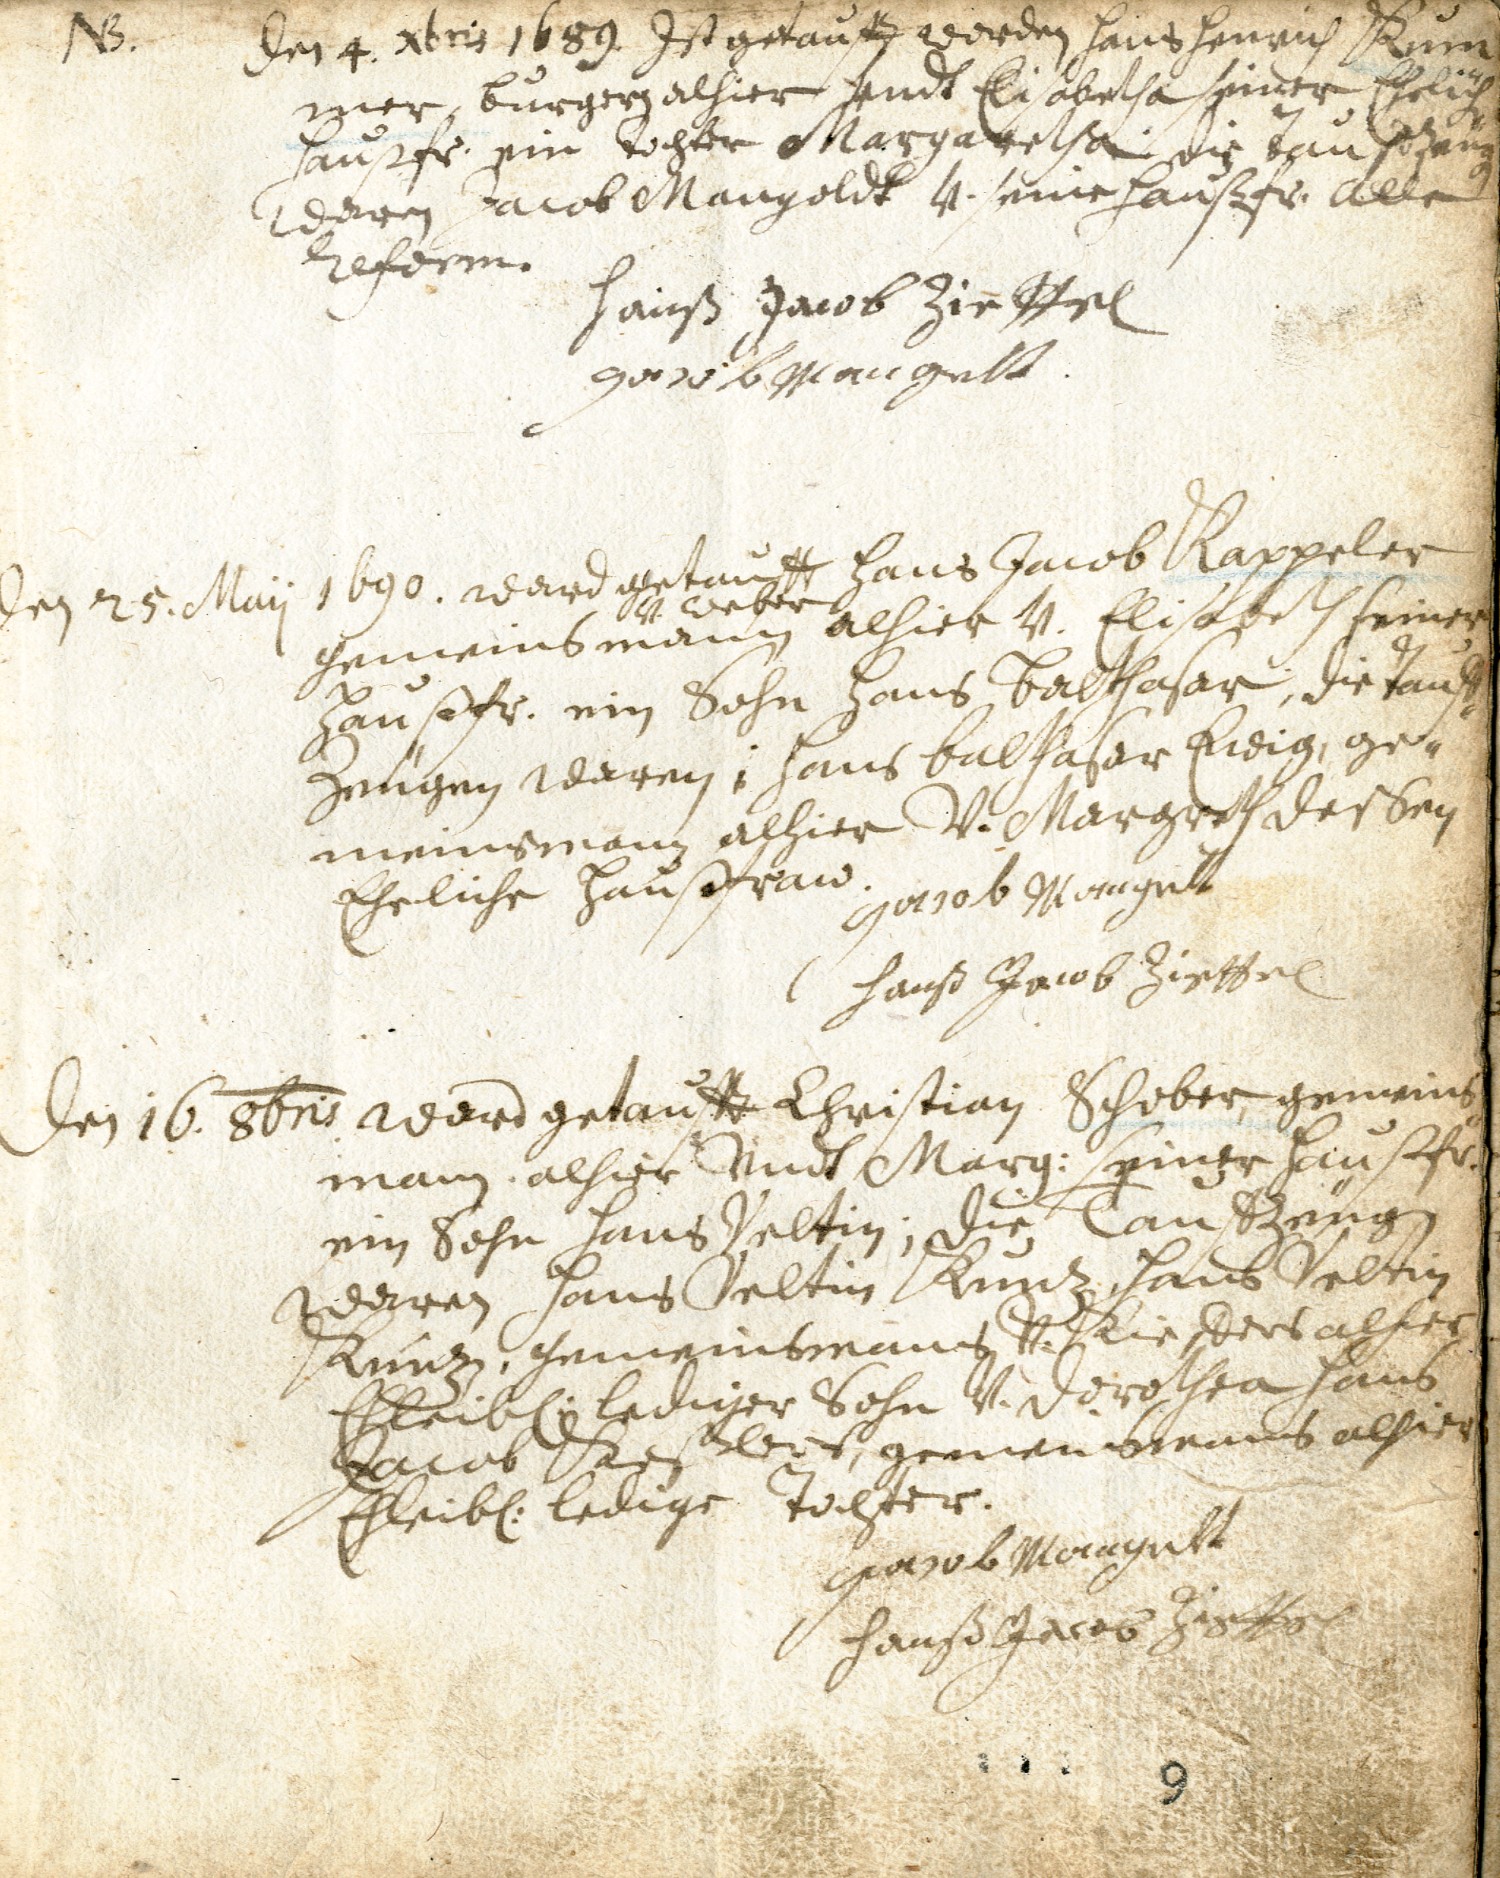 NB. Den 4. Xbris 1689. Ist getaufft worden Hans Henrich Kum
mer, burgern alhier Undt Elisabetha seiner Ehelich
Haußfr. ein Tochter Margaretha; die Tauffzeüg
waren Jacob Mangoldt V. seine Haußfr. alle
Reform.
Hanß Jacob Zieffel
Jacob Mangelt.
Den 25. Maij 1690. ward getaufft Hans Jacob Kappeler
V. weber
gemeinsmann alhier V. Elisabeth seiner
Haußfr. ein Sohn Hans Balthasar, die tauff-
Zeugen waren; Hans balthasar, ge-
meinsmann alhier V. Margreth dessen
Eheliche Haußfraw.
Jacob Mangelt
Hanß Jacob Zieffel
Den 16. 8bris ward getaufft Christian Schober, gemeins
mann alhier Undt Marg: seiner Haußfr.
ein Sohn Hans Veltin; die Tauffzeügen
waren Hans Veltin Kuntz, Hans Veltin
Kuntz, gemeinsmans V. alhier
Ehleibl: lediger Sohn V. Dorothea Hans
Jacob gemeinsmans alhier
Ehleibl: ledige Tochter.
Jacob Mangelt
Hanß Jacob Zieffel
9